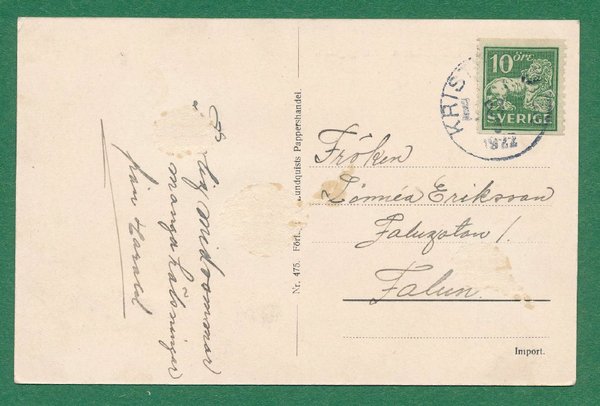 midsommar
många hälsningar
från Harald
Nr. 475. Förl. Lundquists Pappershandel.
10 öre
SVERIGE
KRIS
Fröken
Linnéa Eriksson
Falugatan 1.
Falun.
Import.